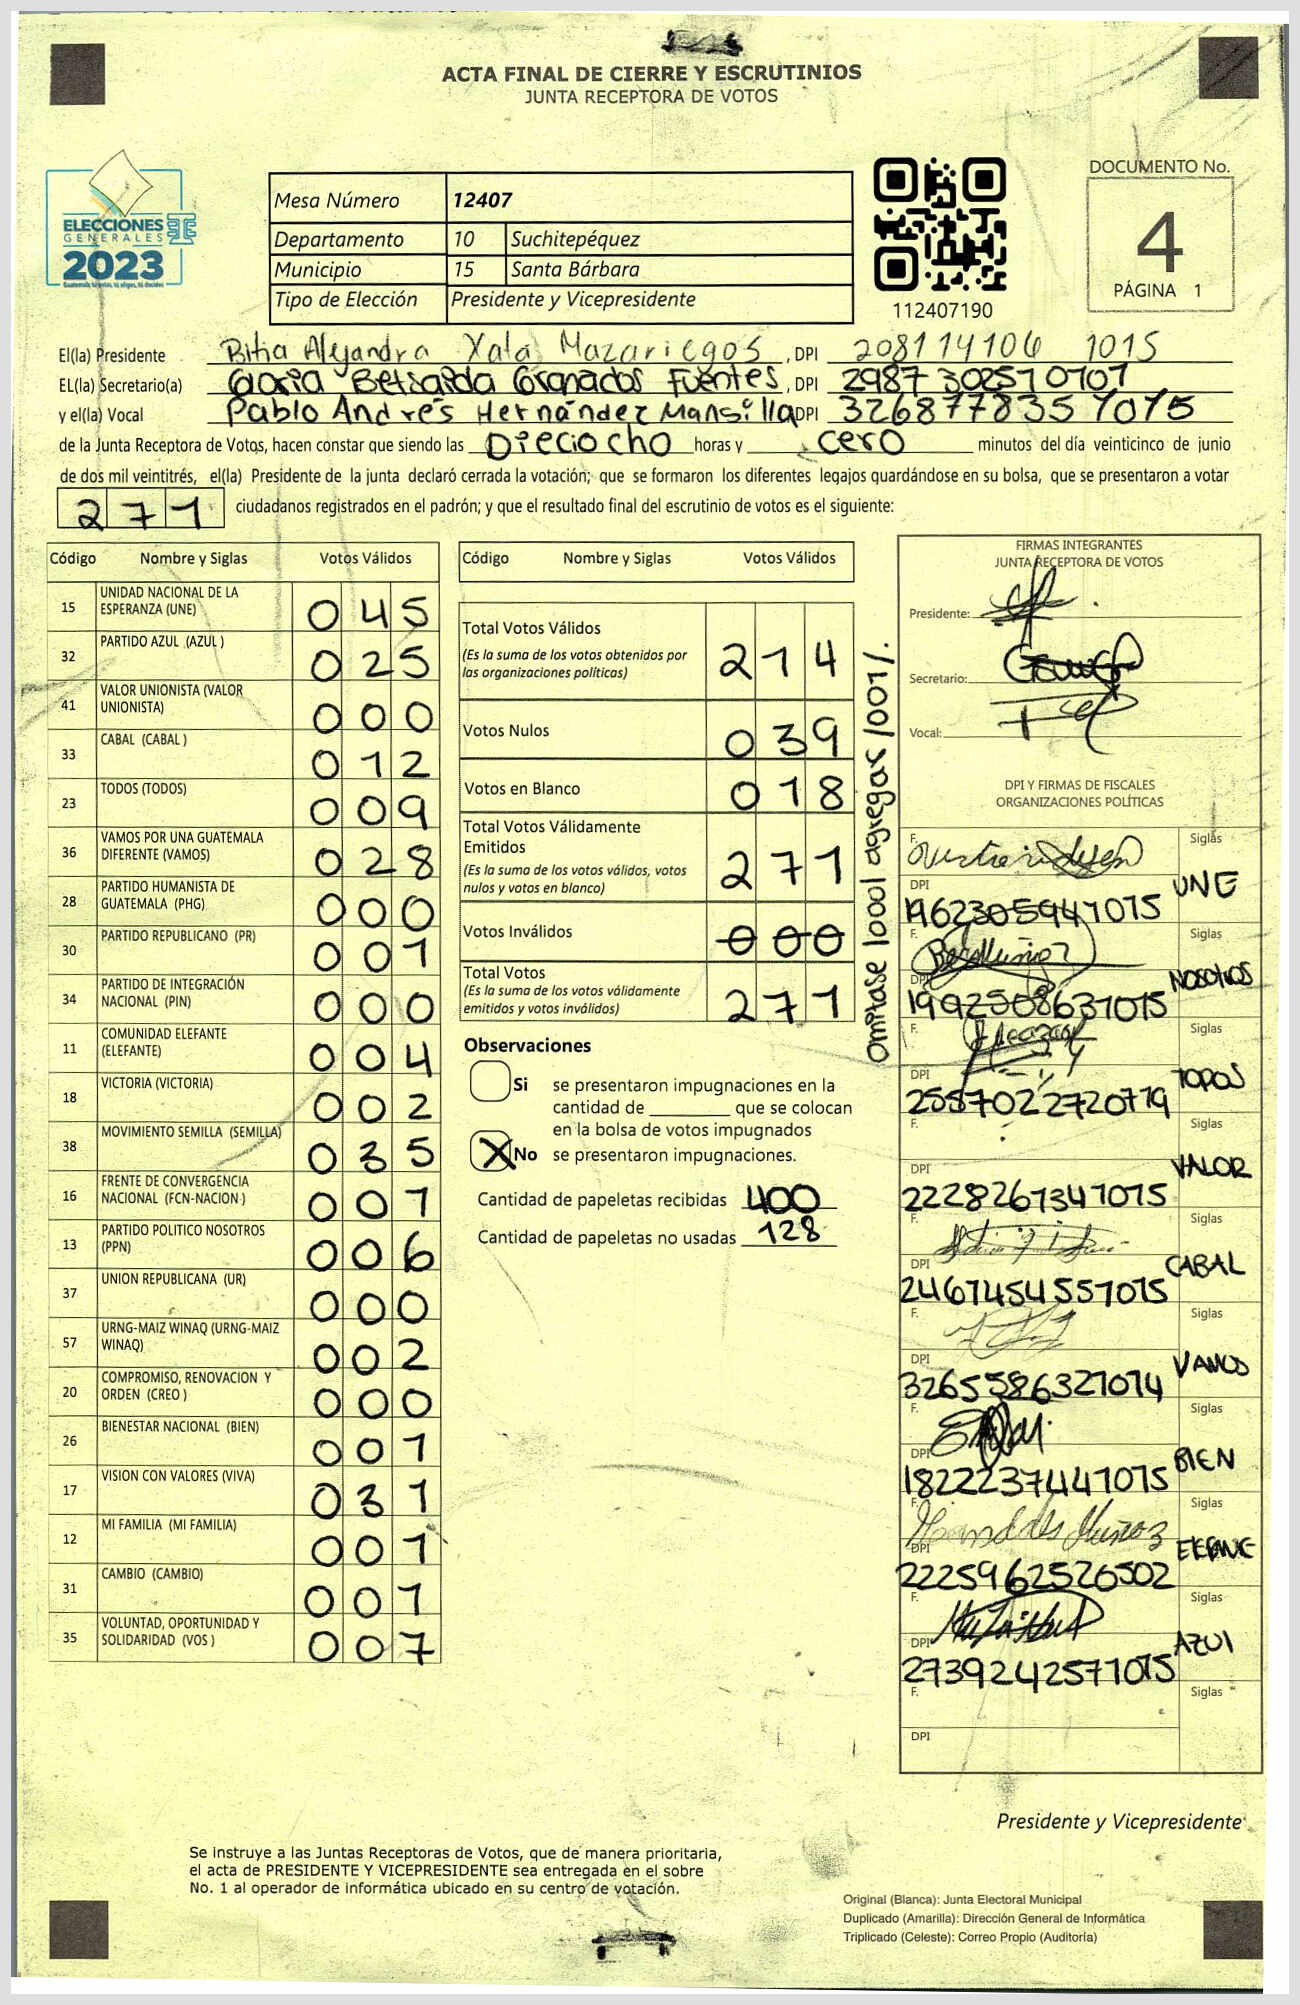 ACTA FINAL DE CIERRE Y ESCRUTINIOS
JUNTA RECEPTORA DE VOTOS
ELECCIONES
GENERALES
2023
Mesa Número 12407
Departamento 10 Suchitepéquez
Municipio 15 Santa Bárbara
Tipo de Elección Presidente y Vicepresidente
112407190
DOCUMENTO No.
4
PÁGINA 1
El(la) Presidente Bitia Alejandra Xala Mazariegos, DPI 208114106 1015
EL(la) Secretario(a) Gloria Betsaida Granados Fuentes, DPI 2987302570101
y el(la) Vocal Pablo Andrés Hernández Mansilla DPI 3268778351015
de la Junta Receptora de Votos, hacen constar que siendo las Dieciocho horas y cero minutos del día veinticinco de junio
de dos mil veintitrés, el(la) Presidente de la junta declaró cerrada la votación; que se formaron los diferentes legajos guardándose en su bolsa, que se presentaron a votar
271 ciudadanos registrados en el padrón; y que el resultado final del escrutinio de votos es el siguiente:
Código Nombre y Siglas Votos Válidos
15 UNIDAD NACIONAL DE LA ESPERANZA (UNE) 045
32 PARTIDO AZUL (AZUL ) 025
41 VALOR UNIONISTA (VALOR UNIONISTA) 000
33 CABAL (CABAL ) 012
23 TODOS (TODOS) 009
36 VAMOS POR UNA GUATEMALA DIFERENTE (VAMOS) 028
28 PARTIDO HUMANISTA DE GUATEMALA (PHG) 000
30 PARTIDO REPUBLICANO (PR) 001
34 PARTIDO DE INTEGRACIÓN NACIONAL (PIN) 000
11 COMUNIDAD ELEFANTE (ELEFANTE) 004
18 VICTORIA (VICTORIA) 002
38 MOVIMIENTO SEMILLA (SEMILLA) 035
16 FRENTE DE CONVERGENCIA NACIONAL (FCN-NACION ) 001
13 PARTIDO POLITICO NOSOTROS (PPN) 006
37 UNION REPUBLICANA (UR) 000
57 URNG-MAIZ WINAQ (URNG-MAIZ WINAQ) 002
20 COMPROMISO, RENOVACION Y ORDEN (CREO ) 000
26 BIENESTAR NACIONAL (BIEN) 001
17 VISION CON VALORES (VIVA) 031
12 MI FAMILIA (MI FAMILIA) 001
31 CAMBIO (CAMBIO) 001
35 VOLUNTAD, OPORTUNIDAD Y SOLIDARIDAD (VOS ) 007
Código Nombre y Siglas Votos Válidos
Total Votos Válidos 214
(Es la suma de los votos obtenidos por
las organizaciones políticas)
Votos Nulos 039
Votos en Blanco 018
Total Votos Válidamente
Emitidos 271
(Es la suma de los votos válidos, votos
nulos y votos en blanco)
Votos Inválidos 000
Total Votos 271
(Es la suma de los votos válidamente
emitidos y votos inválidos)
Omitase 1000l agregar 1001.
Observaciones
Si se presentaron impugnaciones en la
cantidad de ________ que se colocan
en la bolsa de votos impugnados
X No se presentaron impugnaciones.
Cantidad de papeletas recibidas 400
Cantidad de papeletas no usadas 128
FIRMAS INTEGRANTES
JUNTA RECEPTORA DE VOTOS
Presidente:
Secretario:
Vocal:
DPI Y FIRMAS DE FISCALES
ORGANIZACIONES POLÍTICAS
F. Siglas
DPI 1962305941015 UNE
F. Siglas
DPI 1992508631015 NOSOTROS
F. Siglas
DPI 2557022720719 TODOS
F. Siglas
DPI 2228267341015 VALOR
F. Siglas
DPI 2467454551015 CABAL
F. Siglas
DPI 3265586321014 VAMOS
F. Siglas
DPI 1822237441015 BIEN
F. Siglas
DPI 2225962526502
F. Siglas
DPI 2739242571015 AZUl
F. Siglas
DPI
Presidente y Vicepresidente
Se instruye a las Juntas Receptoras de Votos, que de manera prioritaria,
el acta de PRESIDENTE Y VICEPRESIDENTE sea entregada en el sobre
No. 1 al operador de informática ubicado en su centro de votación.
Original (Blanca): Junta Electoral Municipal
Duplicado (Amarilla): Dirección General de Informática
Triplicado (Celeste): Correo Propio (Auditoría)